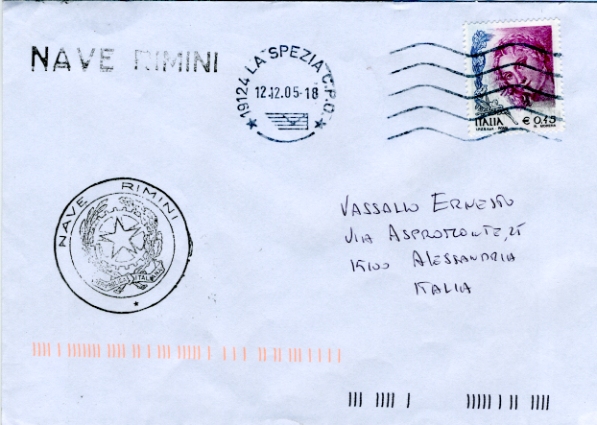 NAVE RIMINI
19124 LA SPEZIA C.P.O
12.12.05-18
ITALIA € 0,45
NAVE RIMINI
VASSALLO ERNESTO
VIA ASPROMONTE, 25
15100 ALESSANDRIA
ITALIA